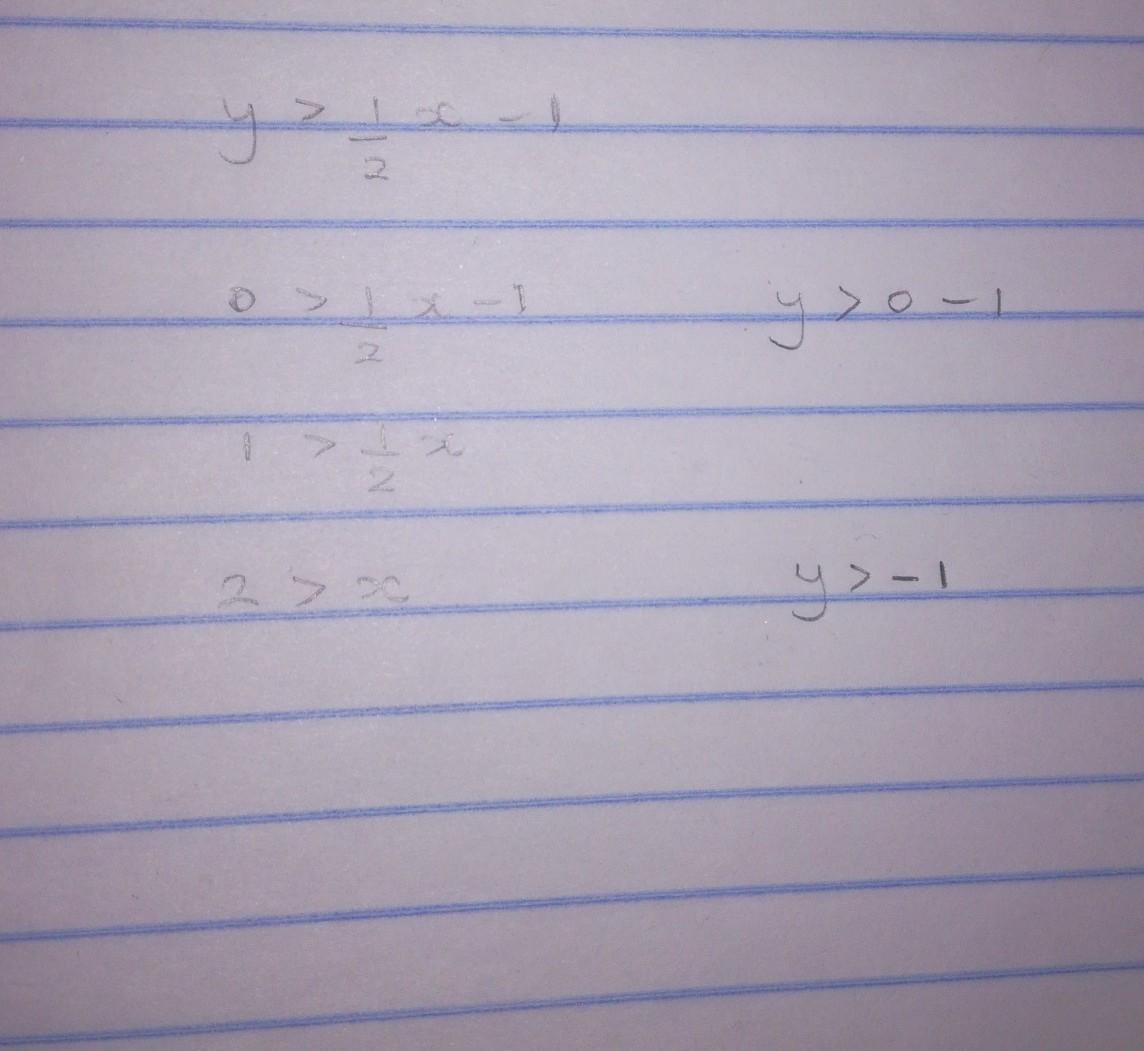 y > 1/2 x - 1
0 > 1/2 x - 1 y > 0 - 1
1 > 1/2 x
2 > x y > - 1